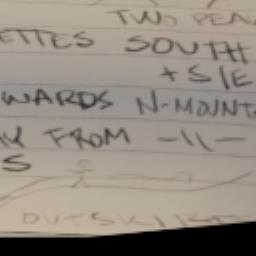 TWO PEA
ETTES SOUTH
+ S/E
WARDS N-MOUNT
FROM -11-
S
OUTSKIRTS